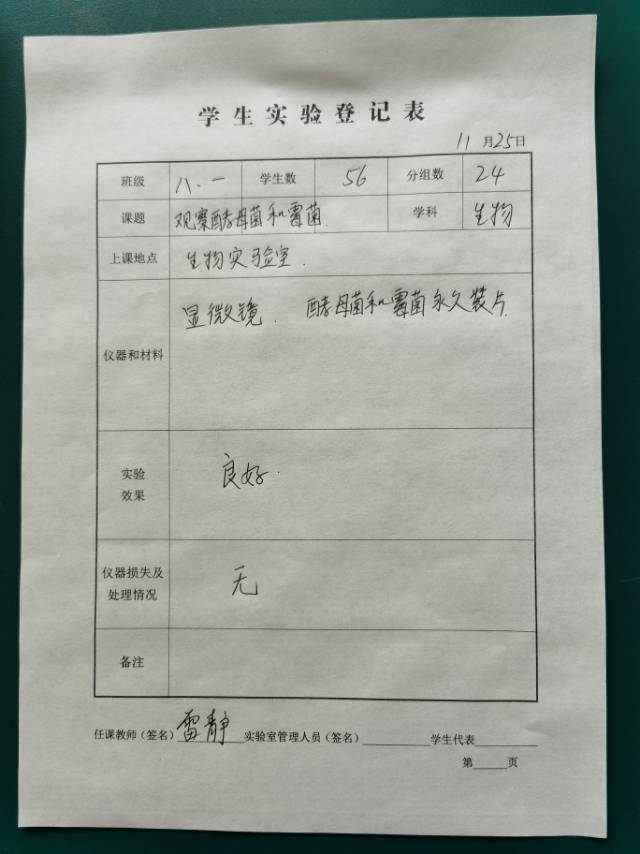 学生实验登记表
11月25日
班级 八.一 学生数 56 分组数 24
课题 观察酵母菌和霉菌. 学科 生物
上课地点 生物实验室.
仪器和材料 显微镜. 酵母菌和霉菌永久装片.
实验
效果 良好.
仪器损失及
处理情况 无
备注
任课教师（签名）雷静 实验室管理人员（签名） 学生代表
第 页